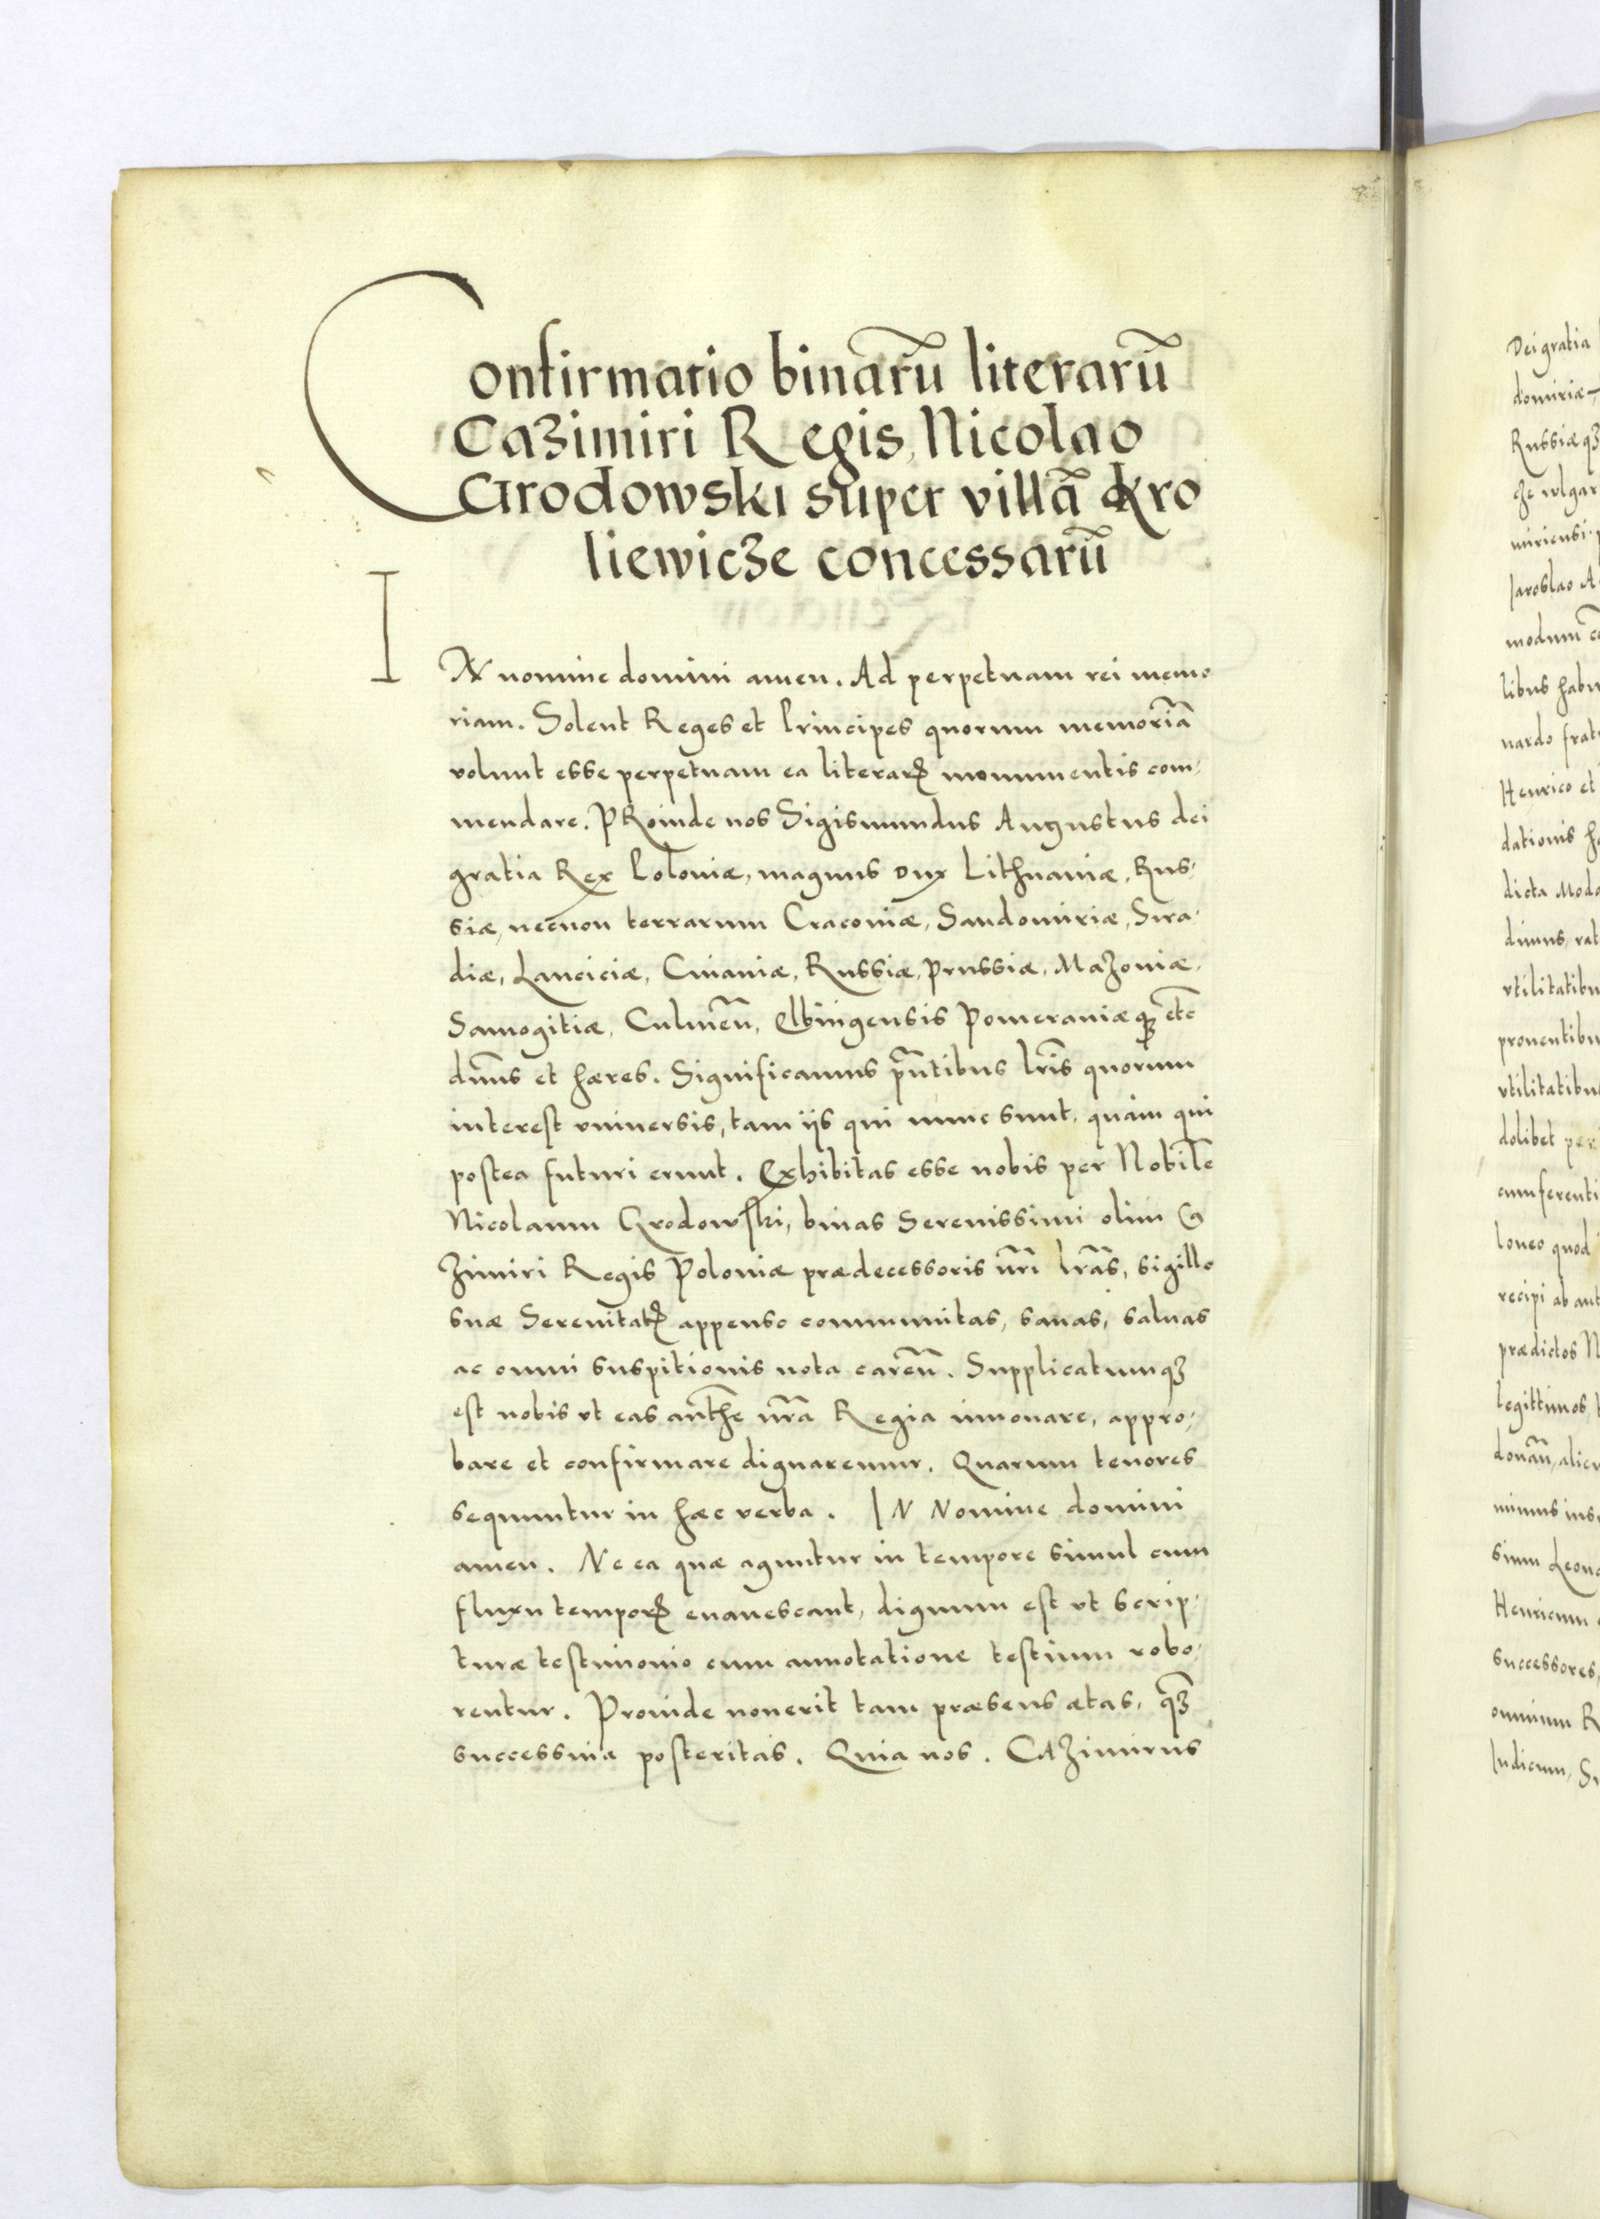 Confirmatio binarū literarū
Cazimiri Regis, Nicolao
Grodowski super villā Kro
liewicze concessarū
IN nomine domini amen. Ad perpetuam rei memo
riam. Solent Reges et Principes quorum memoriā
volunt esse perpetuam ea literarꝝ monumentis com,
mendare. PRoinde nos Sigismundus Augustus dei
gratia Rex Poloniæ, magnus Dux Lithuaniæ, Rus,
siæ, necnon terrarum Cracouiæ, Sandomiriæ, Sira,
diæ, Lanciciæ, Cuiauiæ, Russiæ, Prussiæ, Mazouiæ,
Samogitiæ, Culmeñ, Elbingensis Pomeraniæqꝫ etc
dñus et hæres. Significamus pñtibus lris quorum
interest vniuersis, tam ijs qui nunc sunt, quàm qui
postea futuri erunt. Exhibitas esse nobis per Nobilē
Nicolaum Grodowski, binas Serenissimi olim Ca
zimiri Regis Poloniæ prædecessoris nri lras, sigillo
suæ Serenitatꝭ appenso communitas, sanas, saluas
ac omni suspitionis nota careñ. Supplicatumqꝫ
est nobis vt eas authe nra Regia innouare, appro,
bare et confirmare dignaremur. Quarum tenores
sequuntur in hæc verba. IN Nomine domini
amen. Ne ea quæ aguntur in tempore simul cum
fluxu temporꝭ euanescant, dignum est vt scrip,
turæ testimonio cum annotatione testium robo,
rentur. Proinde nouerit tam præsens ætas, qꝫ̄
successiua posteritas. Quia nos. CAzimirus
Dei gratia
domiriæ
Russiæ qꝫ
ze vlgar
miriensi
Jaroslao A
modum
libus habu
nardo frat
Henrico et
dationis ha
dicta Mod
dimus, rat
vtilitatibu
prouentibu
vtilitatibu
dolibet per
cumferenti
loneo quod
recipi ab ant
prædictos N
legittimos
donañ, alien
nimus ins
sium Leon
Henricum
successores,
omnium R
Judicum, Su